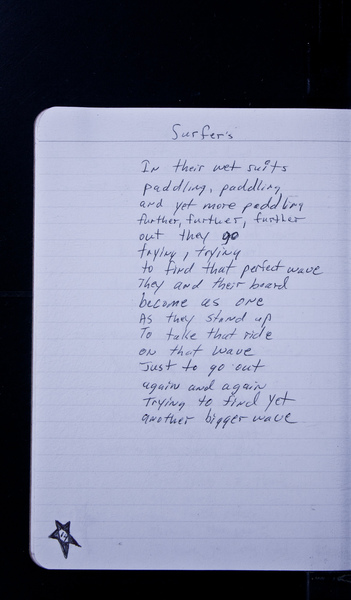 Surfer's
In their wet suits
paddling, paddling
and yet more paddling
further, further, further
out they go
trying, trying
to find that perfect wave
They and their board
become as one
As they stand up
To take that ride
on that wave
Just to go out
again and again
Trying to find yet
another bigger wave